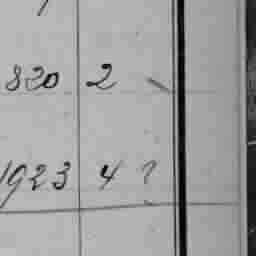 820 2 \
1923 4 ?